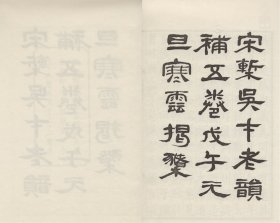 宋槧吳才老韻
補五卷戊午元
旦寒雲揭橥